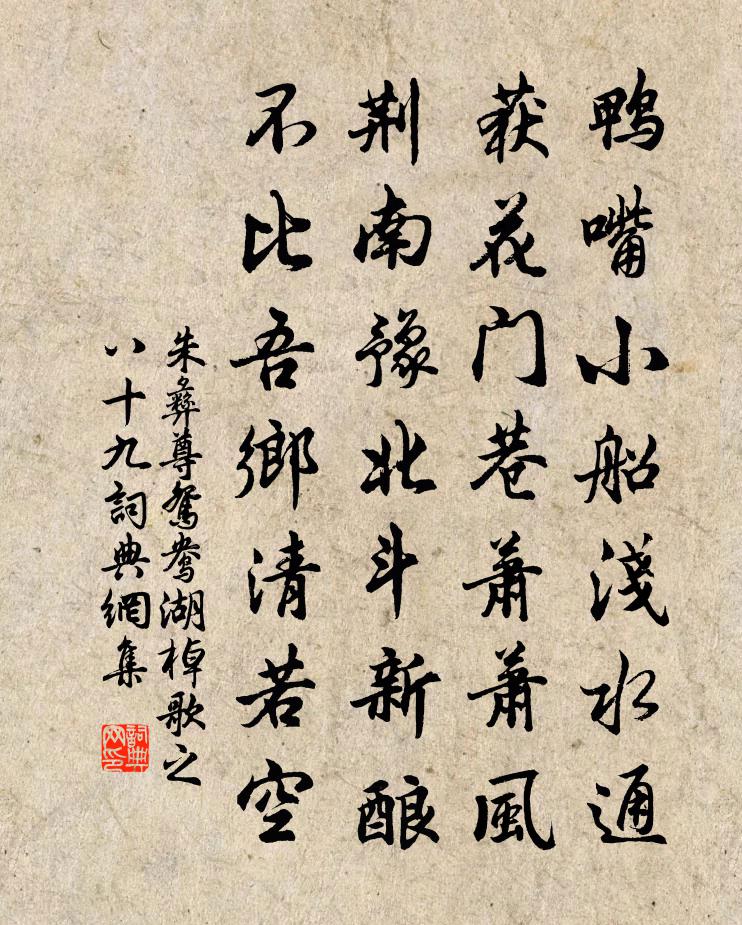 鸭嘴小船淺水通
荻花门巷萧萧風
荆南豫北斗新酿
不比吾鄉清若空
朱彝尊鴛鴦湖棹歌之
八十九詞典網集
詞典网印